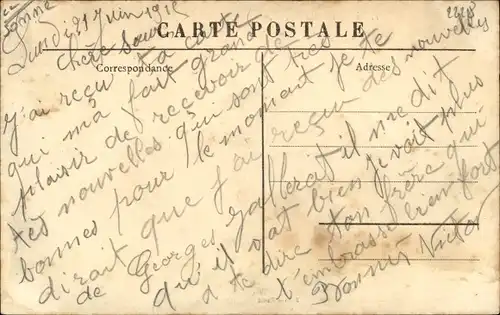 Lundi 21 Juin 1915
CARTE POSTALE
Correspondance
Adresse
Chère Sœur
J'ai reçu ta carte
qui m'a fait grand
plaisir de recevoir de
tes nouvelles qui sont très
bonnes pour le moment je te
dirait que j'ai reçu des nouvelles
de Georges il me dit
qu'il vat bien je voit plus
a te dire ton frère qui
t'embrasse bien fort
Victor